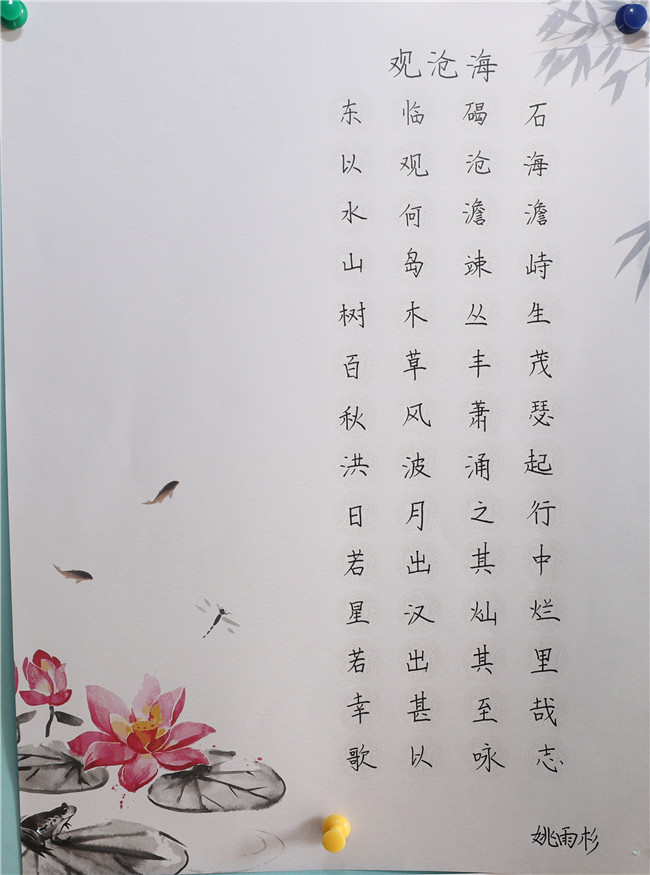 观沧海
东临碣石
以观沧海
水何澹澹
山岛竦峙
树木丛生
百草丰茂
秋风萧瑟
洪波涌起
日月之行
若出其中
星汉灿烂
若出其里
幸甚至哉
歌以咏志
姚雨杉